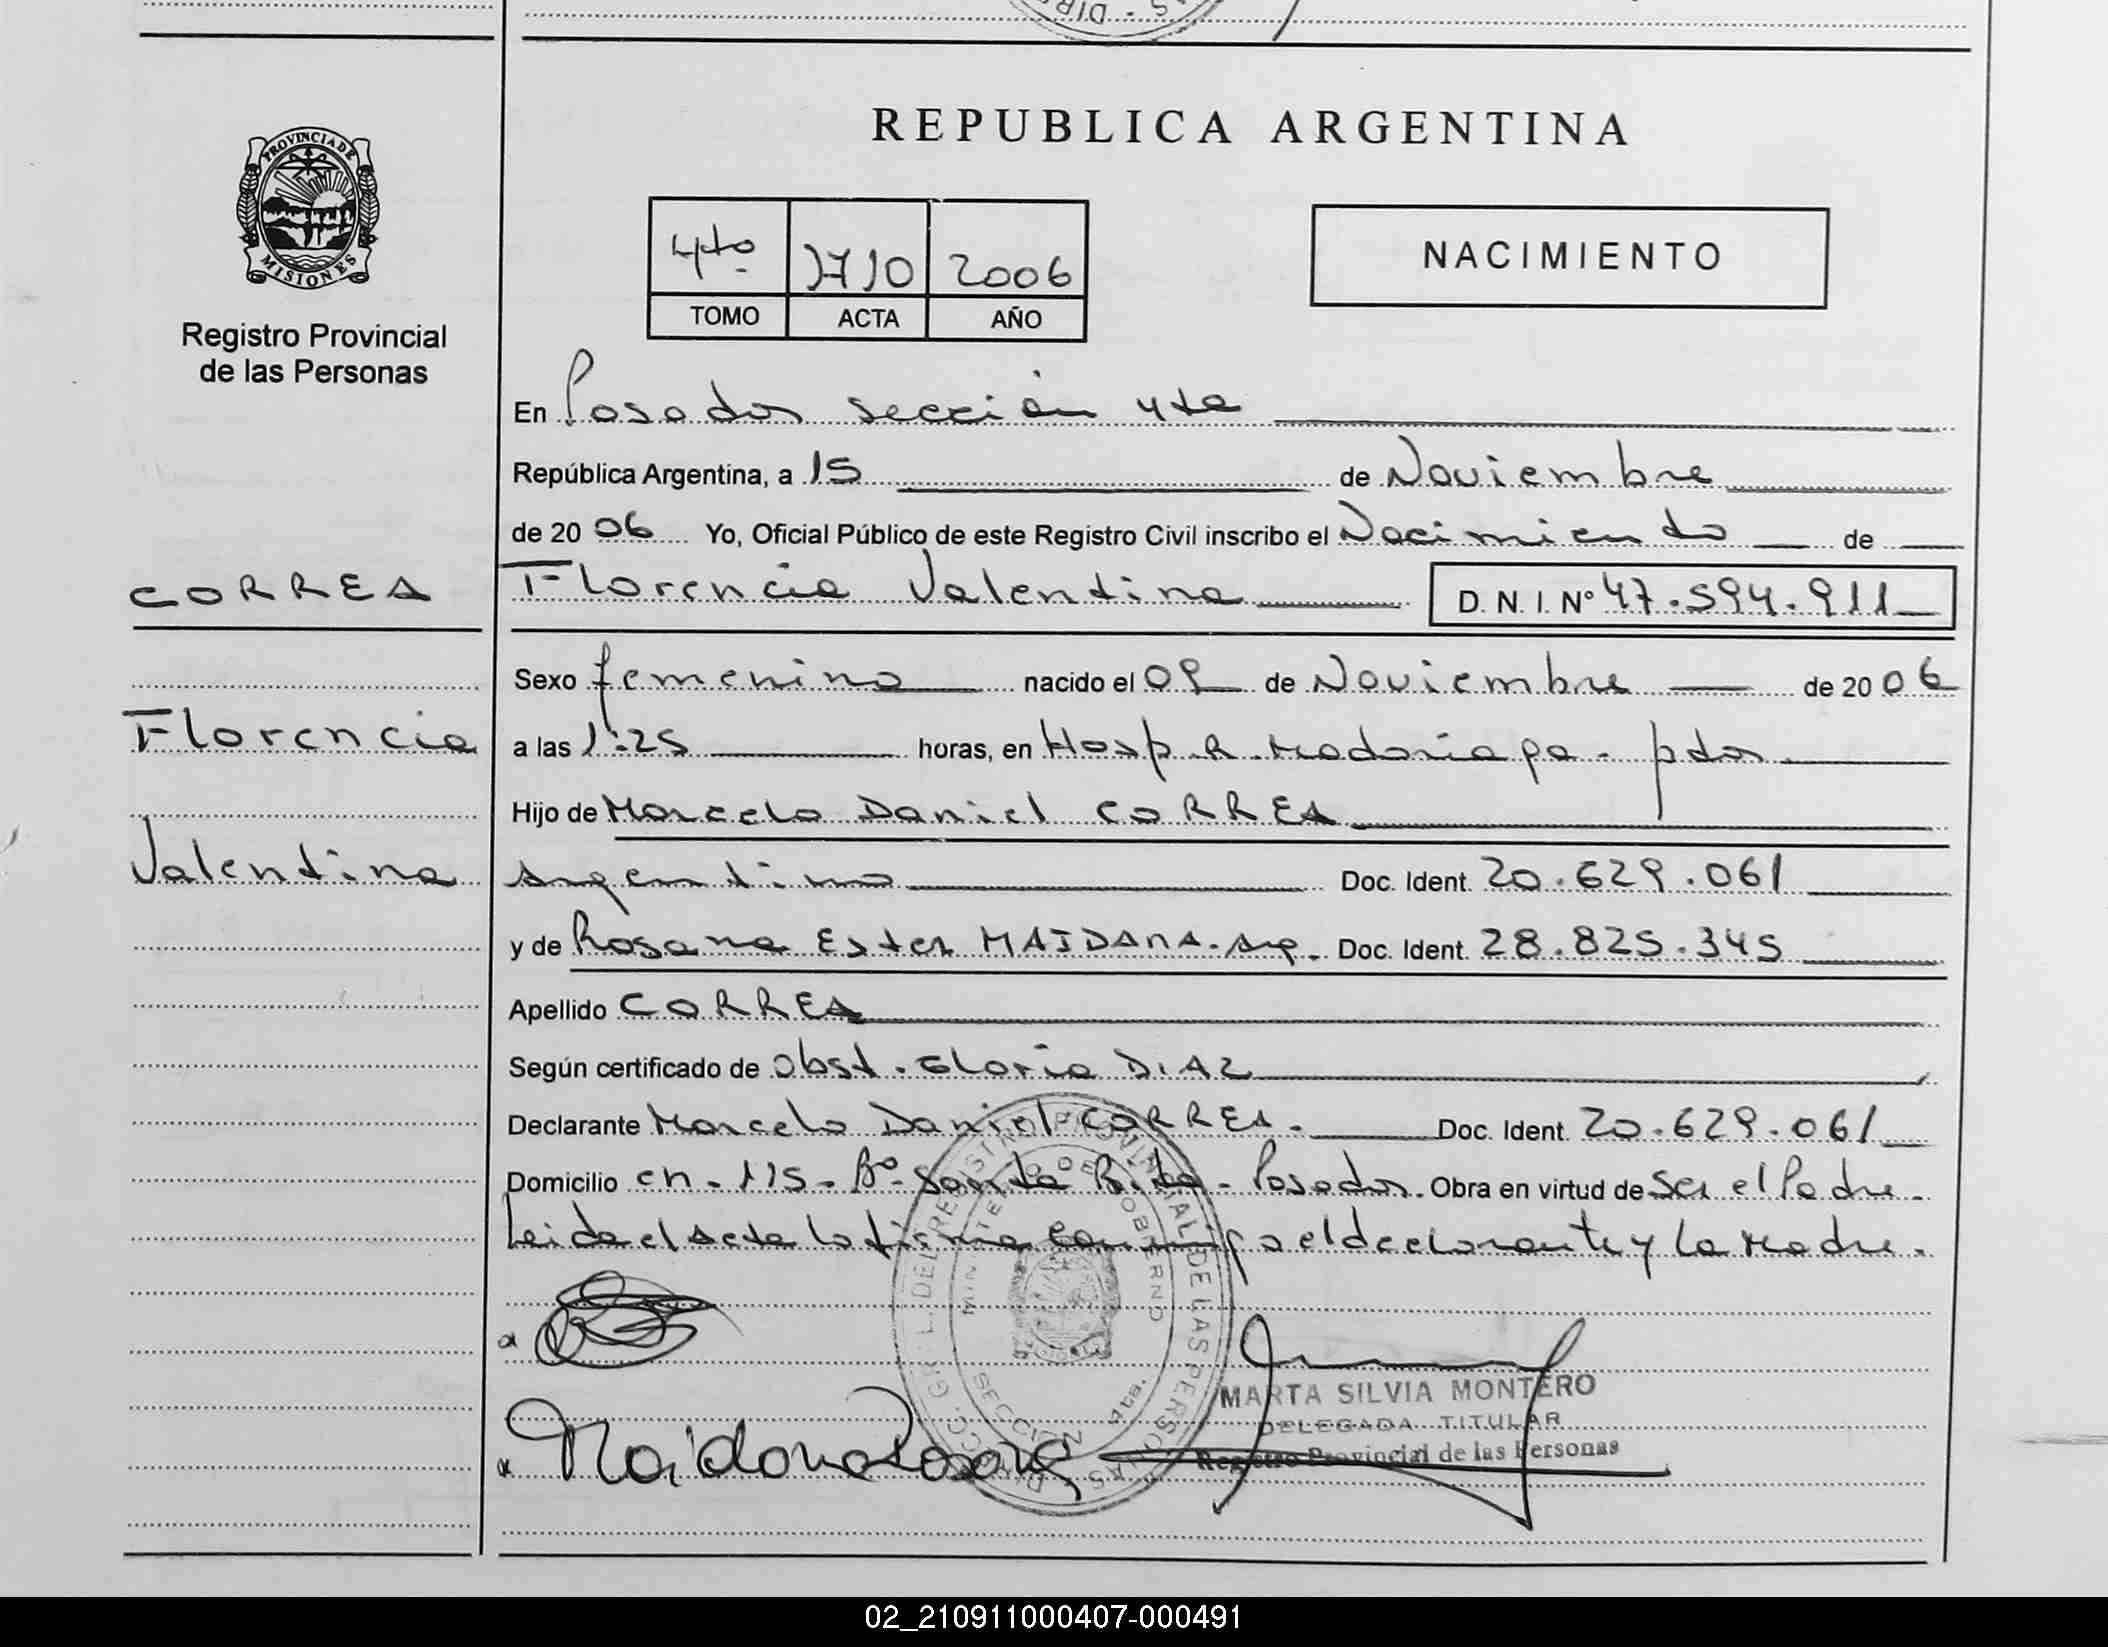 REPUBLICA ARGENTINA
PROVINCIA DE
MISIONES
Registro Provincial
de las Personas
4to 1710 2006
TOMO ACTA AÑO
NACIMIENTO
En Posadas sección 4ta
República Argentina, a 15 de Noviembre
de 2006 Yo, Oficial Público de este Registro Civil inscribo el Nacimiento de
CORREA
Florencia Valentina D. N. I. Nº 47.594.911
Sexo femenino nacido el 09 de Noviembre de 2006
Florencia
a las 1:25 horas, en Hosp. R. Madariaga - pdas
Hijo de Marcelo Daniel CORREA
Valentina
Argentino Doc. Ident. 20.629.061
y de Rosana Ester MAIDANA. Arg. Doc. Ident. 28.825.345
Apellido CORREA
Según certificado de Obst. Gloria DIAZ
Declarante Marcelo Daniel CORREA. Doc. Ident. 20.629.061
Domicilio en - 115 - Bº Santa Rita - Posadas. Obra en virtud de ser el Padre.
Leida el acta la firma conmigo el declarante y la Madre.
MARTA SILVIA MONTERO
DELEGADA TITULAR
Registro Provincial de las Personas
Maidana Rosana
DIRECC. GRAL. DEL REGISTRO PROVINCIAL DE LAS PERSONAS
MINISTERIO DE GOBIERNO
SECCION 4ta.
02_210911000407-000491